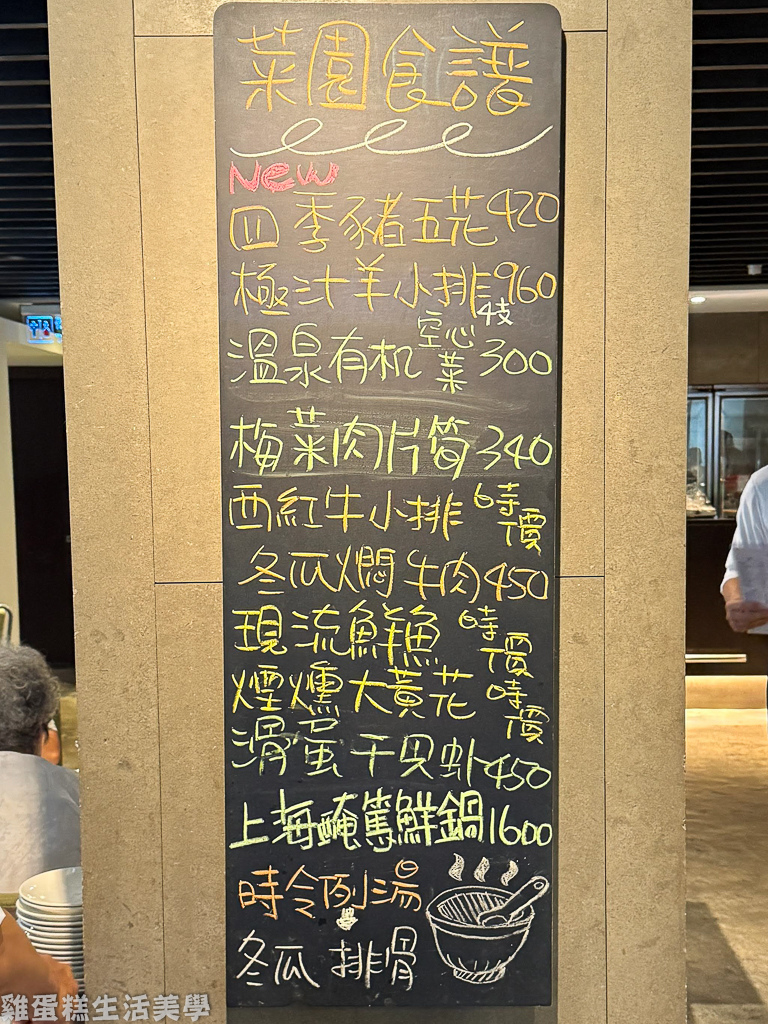 菜園食譜
New
四季豬五花420
極汁羊小排960
4支
溫泉有机空心菜300
梅菜肉片筍340
西紅牛小排時價
冬瓜燜牛肉450
現流鮮魚時價
煙燻大黃花時價
滑蛋干貝虾450
上海醃篤鮮鍋1600
時令例湯
冬瓜排骨
雞蛋糕生活美學